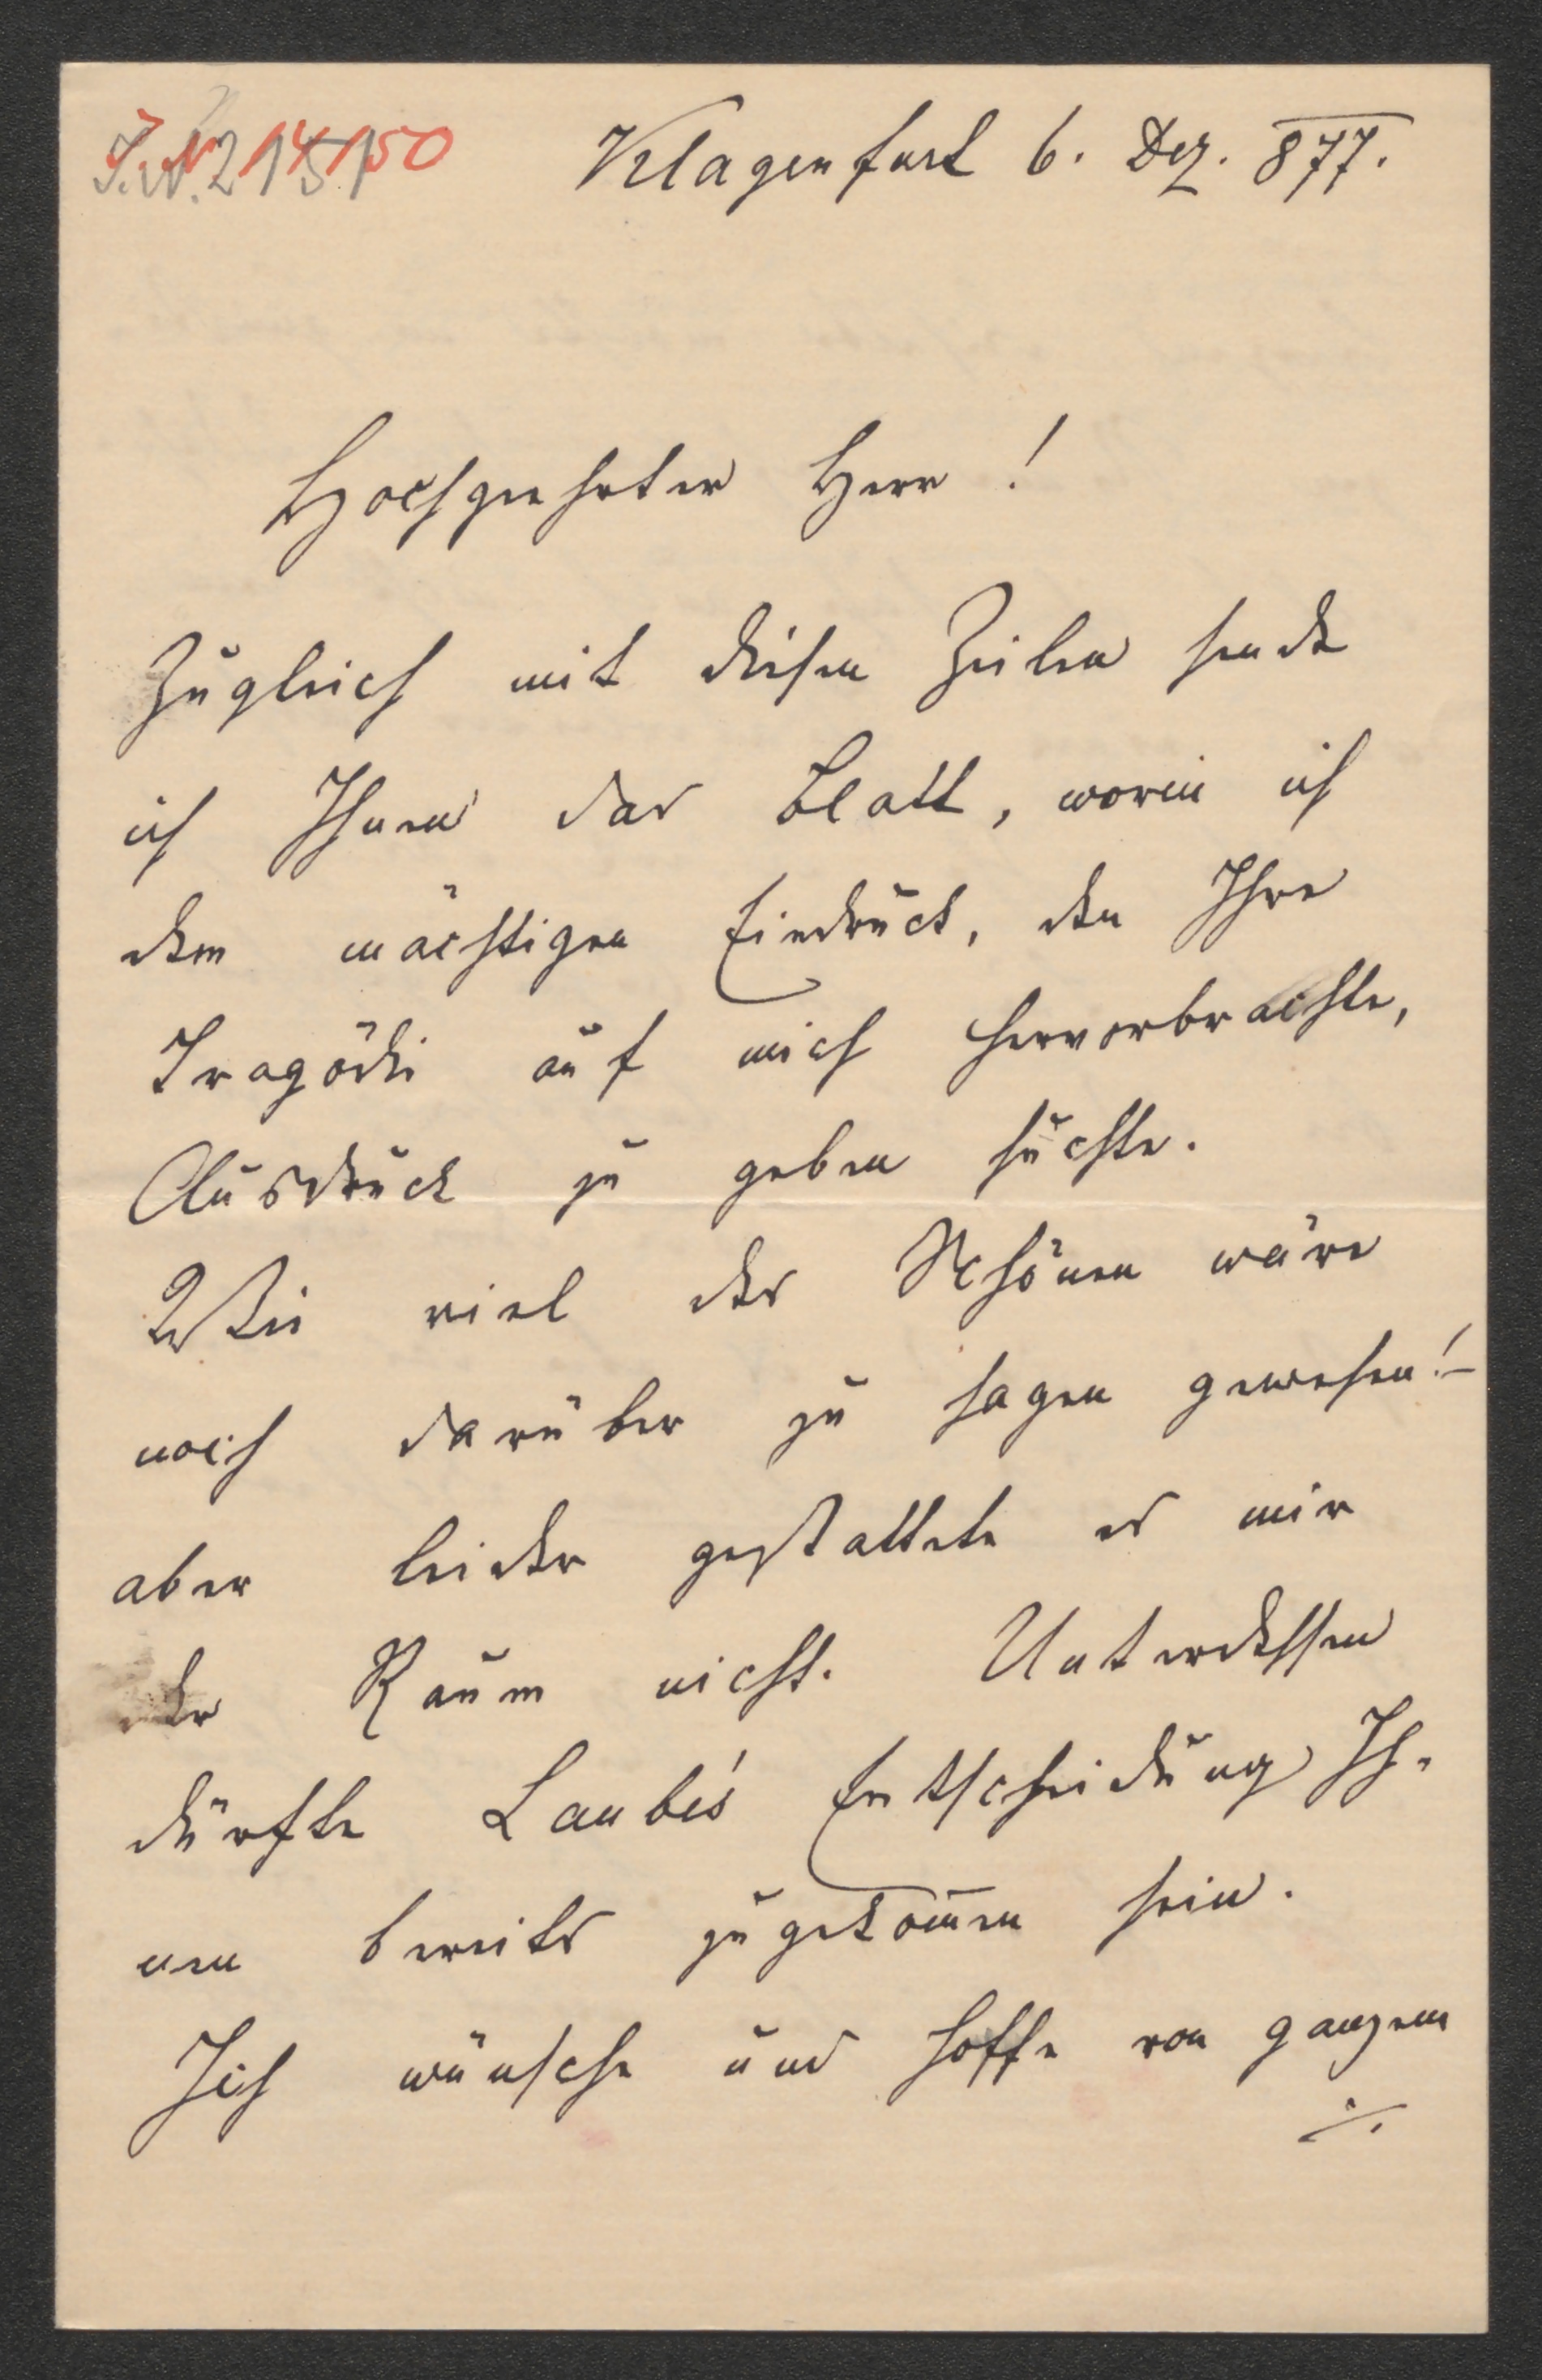 Klagenfurt 6. Dez. 877.
Hochgeehrter Herr!
Zugleich mit diesen Zeilen sende
ich Ihnen das Blatt, worin ich
dem mächtigen Eindruck, den Ihre
Tragödie auf mich hervorbrachte,
Ausdruck zu geben suchte.
Wie viel des Schönen wäre
noch darüber zu sagen gewesen! –
aber leider gestattete es mir
der Raum nicht. Unterdessen
dürfte Laube's Entscheidung Ih-
nen bereits zugekom̅en sein.
Ich wünsche und hoffe von ganzem
./.